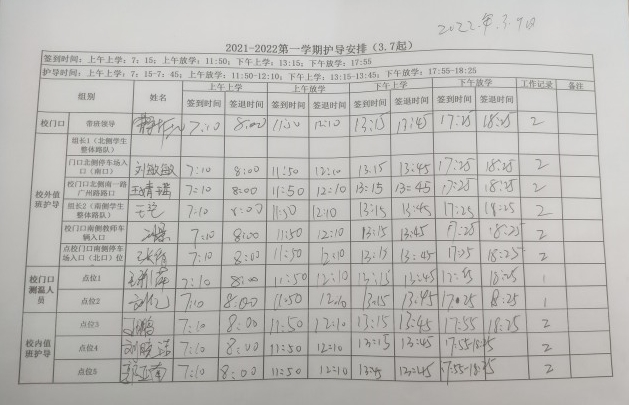 2022.年.3.9日
2021-2022第一学期护导安排（3.7起）
签到时间：上午上学：7：15；上午放学：11:50；下午上学：13:15；下午放学：17:55
护导时间：上午上学：7：15-7：45；上午放学：11:50-12:10；下午上学：13:15-13:45；下午放学：17:55-18:25
组别 姓名 上午上学 上午放学 下午上学 下午放学 工作记录 备注
签到时间 签退时间 签到时间 签退时间 签到时间 签退时间 签到时间 签退时间
校门口 带班领导 7:10 8:00 11:50 12:10 13:15 17:45 17:25 18:25 2
校外值班护导
组长1（北侧学生整体路队）
门口北侧停车场入口（南口） 刘敏敏 7:10 8:00 11:50 12:10 13:15 13:45 17:25 18:25 2
校门口北侧南一路广州路路口 7:10 8:00 11:50 12:10 13:15 13:45 17:25 18:25 2
组长2（南侧学生整体路队） 7:10 8:00 11:50 12:10 13:15 13:45 17:25 18:25 2
校门口南侧教师车辆入口 7:10 8:00 11:50 12:10 13:15 13:45 17:25 18:25 2
点校门口南侧停车场入口（北口）位 7:10 8:00 11:50 12:10 13:15 13:45 17:25 18:25 2
校门口测温人员
点位1 7:10 8:00 11:50 12:10 13:15 13:45 18:25 1
点位2 7:10 8:00 11:50 12:10 13:15 13:45 17:25 8:25 1
校内值班护导
点位3 7:10 8:00 11:50 12:10 13:15 13:45 17:55 18:25 2
点位4 7:10 8:00 11:50 12:10 13:15 13:45 17:55-18:25 2
点位5 7:10 8:00 11:50 12:10 13:45 13:45 17:55-18:25 2